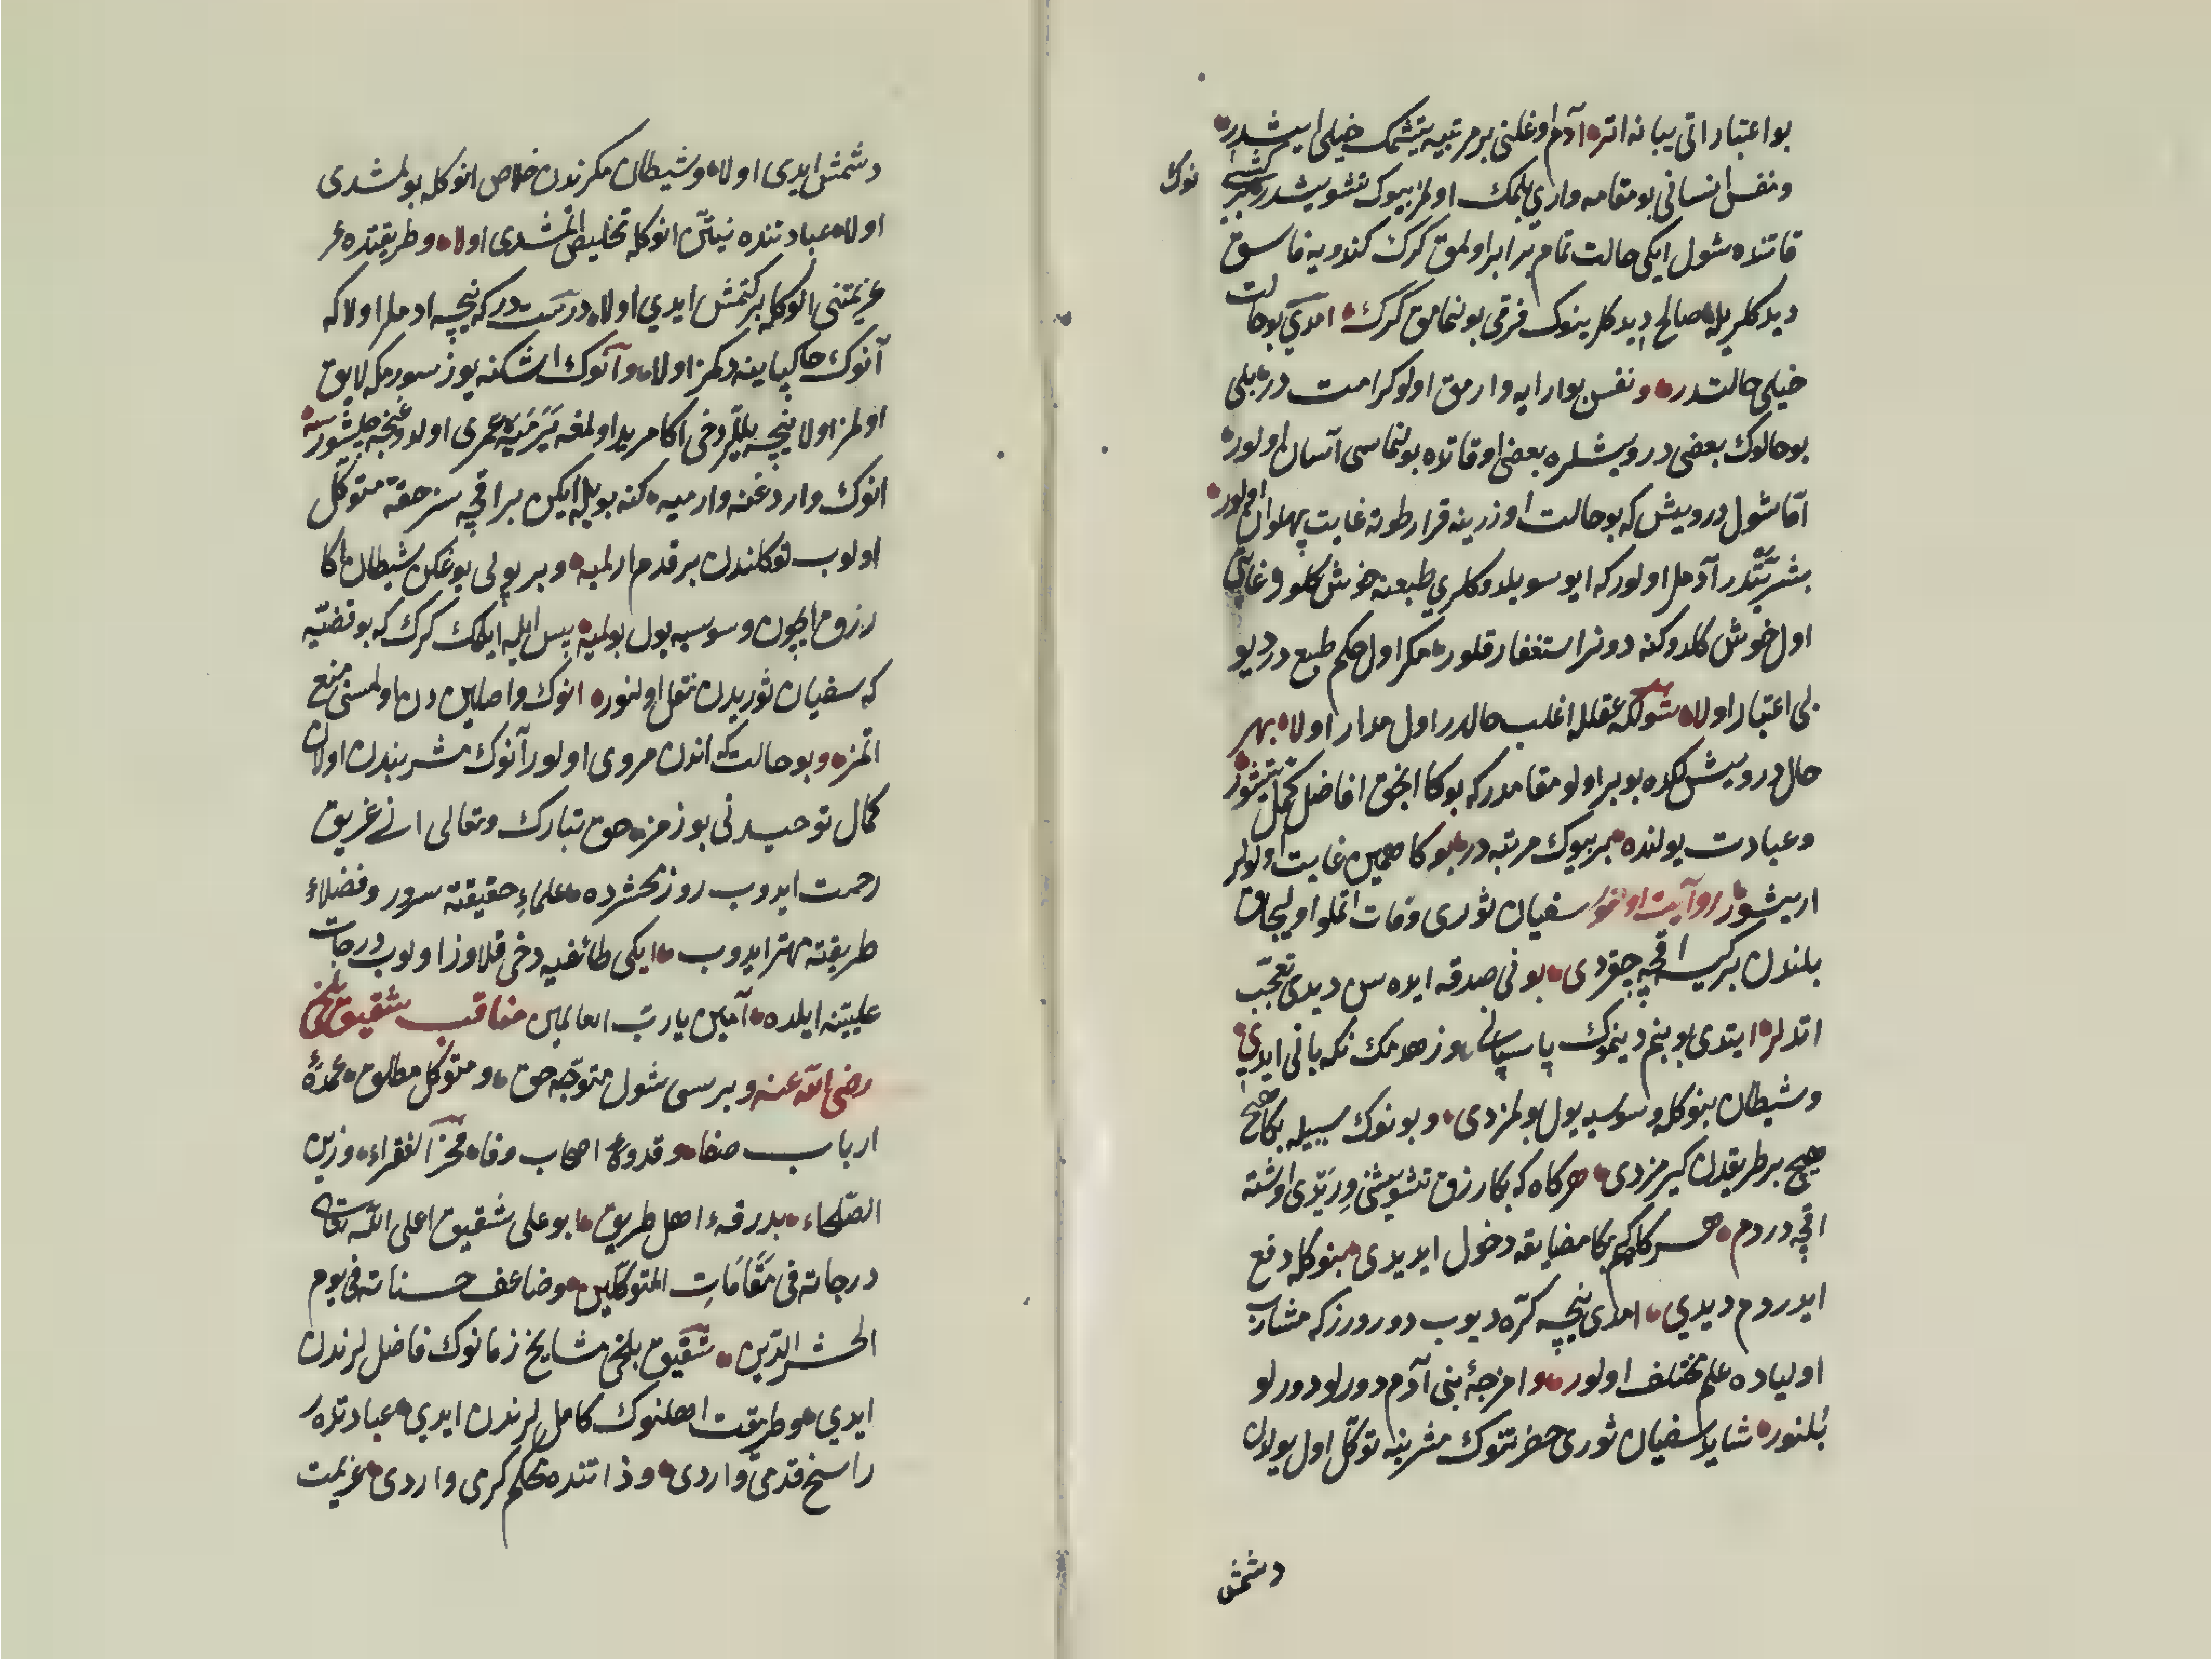 بو اعتبار اتی یبانه اتر ادم اوغلنی بر مرتبیه یتشمك خیلی ایشدر
ونفس انسانی بو مقامه واری بلمك اولمز بیوك تشویشدر
نوك
قاتنده شول ایکی حالت تمام برابر اولمق کرك کندویه فاسق
دیدکلریله صالح دیدکلرینوك فرقی بولنمامق کرك امدی بو حالت
خیلی حالتدر ونفس بو ارایه وارمق اولو کرامت در بلی
بو حالوك بعضی درویشلره بعضی اوقاتده بولنماسی آسان اولور
امّا شول درویش که بو حالت اوزرینه قرار طوته غایت پهلوان اولور
بشریّتدر آدملر اولور که ایو سویلدوکلری طبعنه خوش کلور
اول خوش کلدوکنه دونر استغفار قلور مکر اول حکم طبع در دیو
بی اعتبار اولا شولکه عقلله اغلب حالدر اول مدار اولا بهر
حال درویش بو بر اولو مقامدر که بوکا انجق افاضل کمّل یتیشور
وعبادت یولنده بر بیوك مرتبه در بوکا همین غایت اولولر
اریشور روآیت اولنور سفیان ثوری وفات اتملو اولیجاق
بلندن بر کیسه اقچه چقردی بونی صدقه ایده سن دیدی تعجّب
اتدلر ایتدی بو بنم دینموك پاسبانی وزهدمك نکه بانی ایدی
وشیطان بنوکله وسوسیه یول بولمزدی وبونوك سببیله بکا هیچ
هیچ بر طریقدن کیرمزدی هرکاه که بکا رزق تشویشنی ویریّدی اوشته
اقچه دردم هرکاه که بکا مضایقه دخول ایدیدی بنوکله دفع
ایدردم دیدی امدی نیچه کرّه دیوب دورورز که مشارب
اولیاده علم مختلف اولور وامزجۀ بنی آدم دورلو دورلو
بُلنور شاید سفیان ثوری حضرتنوك مشربنه توکّل اول یولدن
دشمش
دشمش ایدی اولا وشیطان مکرندن خلاص انوکله بولمشدی
اولا عبادتنده نیتّن انوکله تخلیص اتمشدی اولا وطریقتده
عزیمتنی انوکله برکتمش ایدی اولا درست در که نیچه ادملر اولا که
آنوك خاکپاینه دکمز اولا وآنوك اشکنه یوز سورمکه لایق
اولمز اولا نیچه بیللر دخی اکا مرید اولمغه یَرَمَیَه عمری اولدوغنجه چلیشورسه
انوك واردغنه وارمیه کنه بویله ایکن بر اقچه سز حقّه متوکّل
اولوب توکلندن بر قدم ارلمیه وبر پولی یوغکن شیطان اکا
رزق ایچون وسوسیه یول بولمیه پس ایله ایکمك کرك که بو قضیّه
که سفیان ثوریدن نقل اولنور انوك واصلین دن اولمسنی منع
اتمز وبو حالت که اندن مروی اولور آنوك مشربندن اولان
کمال توحیدنی بوزمز حق تبارك وتعالی انی غریق
رحمت ایدوب روز محشرده علماءِ حقیقته سرور وفضلاء
طریقته مهتر ایدوب ایکی طائفیه دخی قلاوز اولوب درجات
علیتنه ایلده آمین یا ربّ العالمین مناقب شقیق بلخی
رضی الله عنه وبرسی شول متوجّه حق ومتوکّل مطلق عمدۀ
ارباب صفا وقدوۀ اصحاب وفا مفخر الفقراء وزین
الصّلحاء بدرقۀ اهل طریق ابو علی شقیق اعلی الله تعالی
درجاته فی مَقَامَاتِ المتوکّلین وضاعف حسناته فی یوم
الحشر والدّین شقیق بلخی مشایخ زمانوك فاضللرندن
ایدی وطریقت اهلنوك کامللرندن ایدی عبادتده
راسخ قدمی واردی وذاتنده محکم کرمی واردی عزیمت